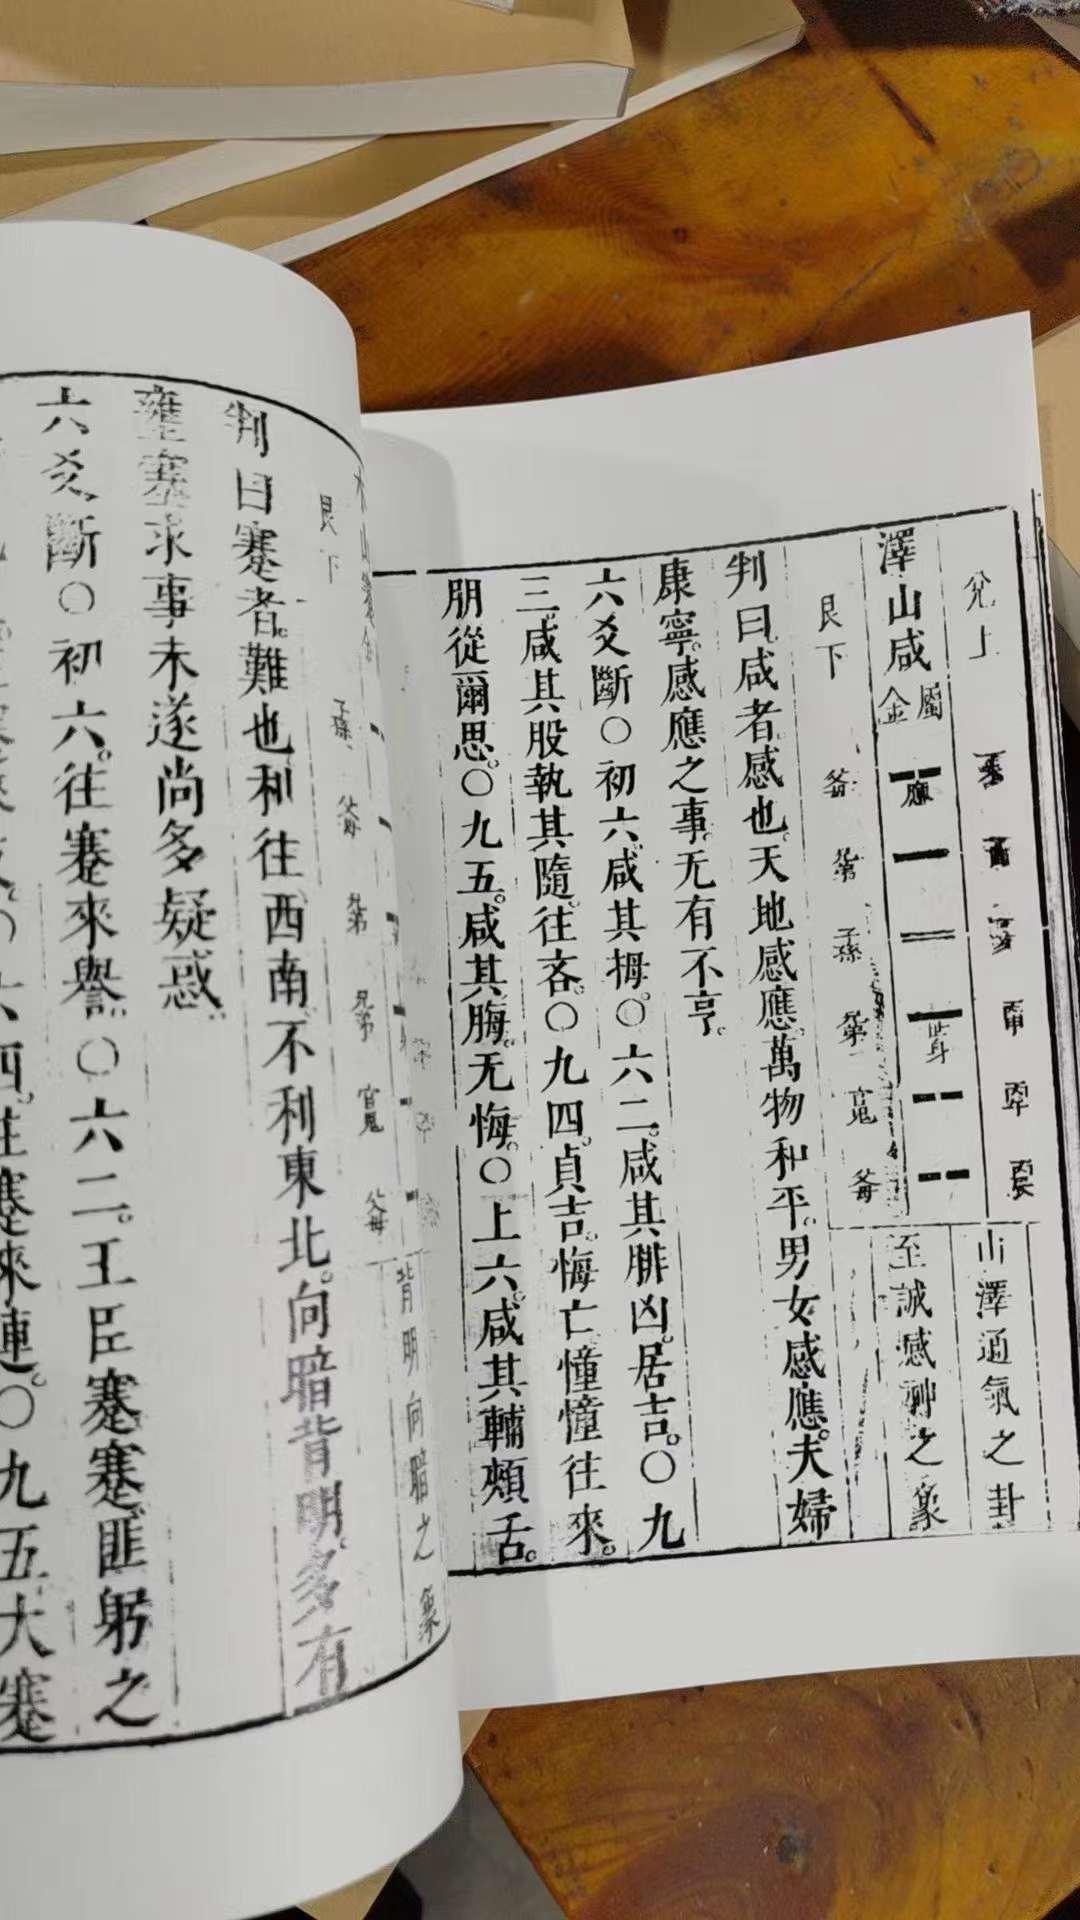 兌上
山澤通氣之卦
澤山咸屬金
應
世身
至誠感神之象
艮下
父母 兄弟 子孫 兄弟 官鬼 父母
判曰咸者感也天地感應萬物和平男女感應夫婦
康寧感應之事无有不亨
六爻斷〇初六咸其拇〇六二咸其腓凶居吉〇九
三咸其股執其隨往吝〇九四貞吉悔亡憧憧往來
朋從爾思〇九五咸其脢无悔〇上六咸其輔頰舌
水山蹇金
艮下
子孫 父母 兄弟 兄弟 官鬼 父母
背明向暗之象
判曰蹇者難也利往西南不利東北向暗背明多有
壅塞求事未遂尚多疑惑
六爻斷〇初六往蹇來譽〇六二王臣蹇蹇匪躬之
六四往蹇來連〇九五大蹇